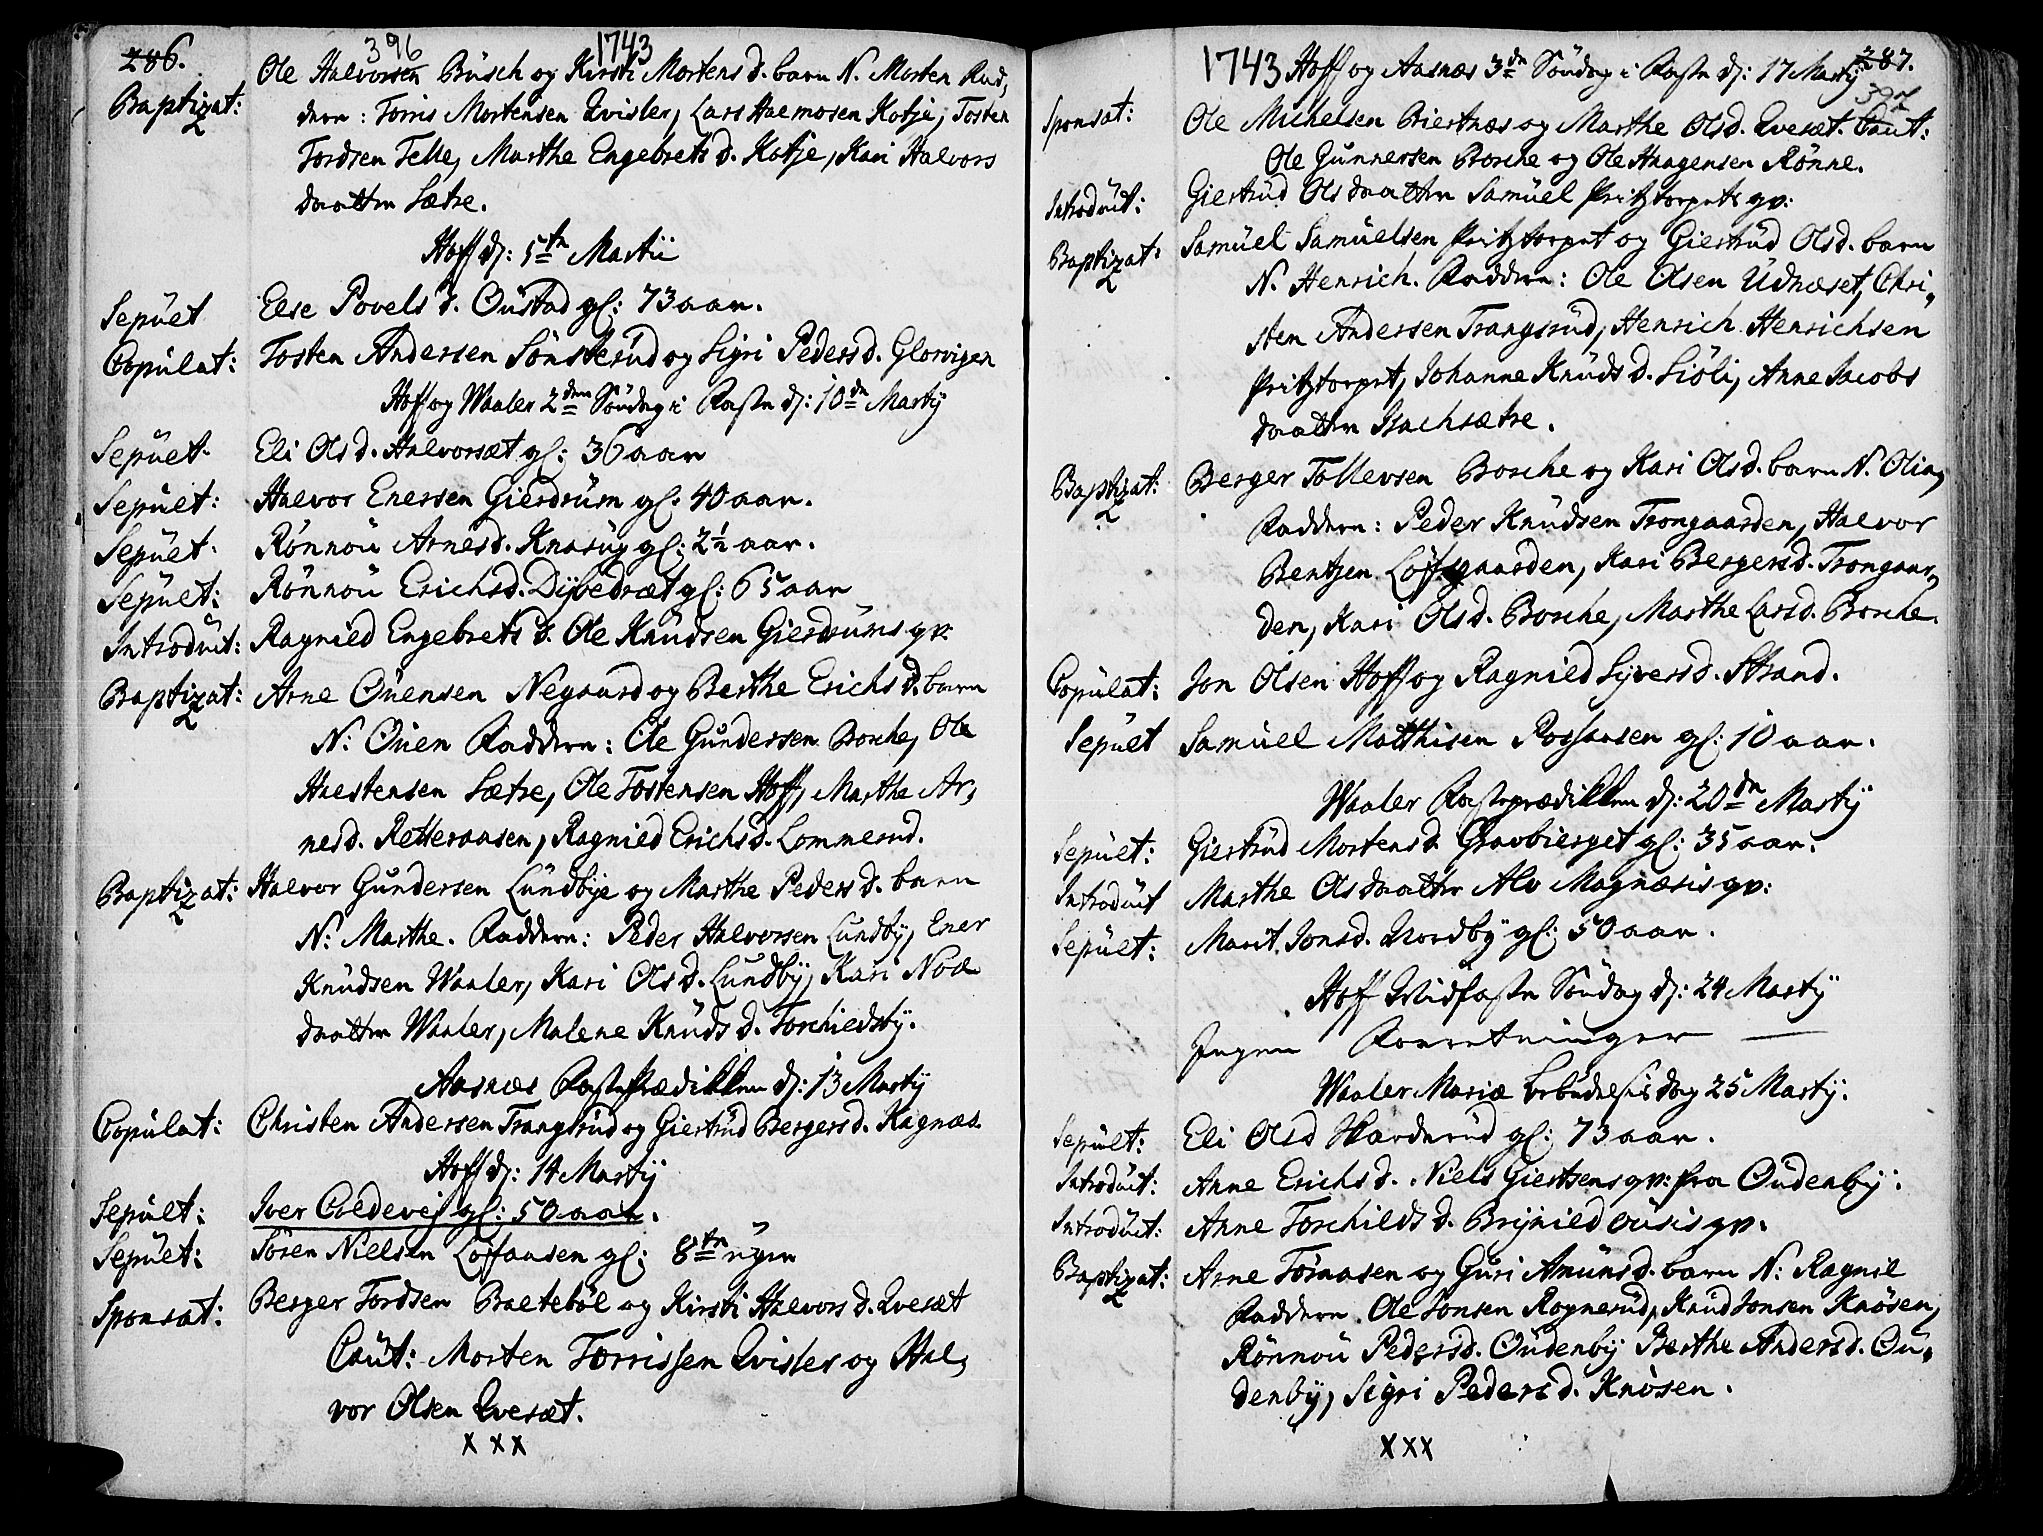 286.
396
1743
Baptizat: Ole Halvorsen Büsch og Kirsti Mortens d. barn N. Morten Fad,
dern: Torris Mortensen Qvisler, Lars Halmosen Kotje, Tosten
Tordsen Telle, Marthe Engebrets d. Kotje, Kari Halvors
daatter Sætre.
Hoff d: 5te Martii
Sepült Else Povels d. Oüstad gl: 73 aar.
Copülat: Tosten Andersen Sönsterüd og Sigri Peders d. Glorvigen
Hoff og Waaler 2den Söndag i Faste d: 10de Martij
Sepült. Eli Ols d. Halvorsæt gl: 36 aar
Sepült: Halvor Enersen Gierdrüm gl: 40 aar.
Sepült. Rönnoü Arnesd. Knasüg gl: 2½ aar.
Sepült: Rönnoü Erichsd. Dybedræt gl: 65 aar
Introdüct: Ragnild Engebrets d. Ole Knüdsen Gierdrüms qv:
Baptizat: Arne Oüensen Negaard og Berthe Erichs d. barn
N: Oüen Faddern: Ole Gündersen Borche, Ole
Halstensen Sætre, Ole Tostensen Hoff, Marthe Ar,
nesd. Retteraasen, Ragnild Erichs d. Lommerud.
Baptizat: Halvor Gündersen Lündbye og Marthe Peders d. barn
N: Marthe. Faddern: Peder Halvorsen Lündby, Ener
Knüdsen Waaler, Kari Ols d. Lündby, Kari Noe
daatter Waaler, Malene Knüds d. Torchildsby.
Aasnæs Fasteprædikken d: 13 Martij
Copülat: Christen Andersen Trangsrüd og Giertrüd Bergersd. Kagnæs
Hoff d: 14 Martij
Sepült: Iver Qvedevej gl: 50 aar.
Sepült: Sören Nielsen Loffaasen gl: 8te ügen
Sponsat: Berger Tordsen Brateböl og Kirsti Halvors d. Qvesæt
Caüt: Morten Torrissen Qvisler og Hal,
vor Olsen Qvesæt.
x x x
1743 Hoff og Aasnæs 3de Söndag i Faste d: 17 Martij
287.
397
Sponsat: Ole Michelsen Biertnæs og Marthe Olsd. Qvesæt. Caut:
Ole Günnersen Borche og Ole Haagensen Rönne.
Introdüct: Giertrüd Ols daatter Samüel Pritztorpets qv:
Baptizat: Samüel Samüelsen Pritztorpet og Giertrüd Olsd. barn
N. Henrich. Faddern: Ole Olsen Udnæset, Chri,
sten Andersen Trangsrüd, Henrich Henrichsen
Pritztorpet, Johanne Knüds d. Siöli, Anne Jacobs
daatter Isachsætre.
Baptizat: Berger Tollevsen Borche og Kari Olsd. barn N. Olia,
Faddern: Peder Knüdsen Trongaarden, Halvor
Bentzen Löffsgaarden, Kari Bergersd. Trongaar,
den, Kari Ols d. Borche, Marthe Larsd. Borche.
Copülat: Jon Olsen Hoff og Ragnild Syversd. Strand.
Sepült Samüel Matthisen Possaasen gl: 10 aar.
Waaler Fasteprædikken d: 20de Martij
Sepült: Giertrüd Mortensd. Gravbierget gl: 35 aar.
Introdüct Marthe Olsdaatter Alv Magnæsis qv:
Sepült: Marit Jonsd. Nordby gl: 50 aar.
Hoff Midfaste Söndag d: 24 Martij
Ingen Forretninger
Waaler Mariæ bebüdelsis dag 25 Martij.
Sepült: Eli Olsd Skarderüd gl: 73 aar.
Introdüct: Anne Erichs d. Niels Giertsens qv: fra Oüdenby.
Introdüct: Anne Torchilds d. Brynild oüsis qv.
Baptizat: Arne Tomasen og Güri Amünsd. barn N: Ragnil
Faddern. Ole Jonsen Rognerüd, Knüd Jonsen Knösen,
Rönnoü Pedersd. Oüdenby Berthe Andersd. Oü,
denby, Sigri Pedersd. Knösen.
xxx